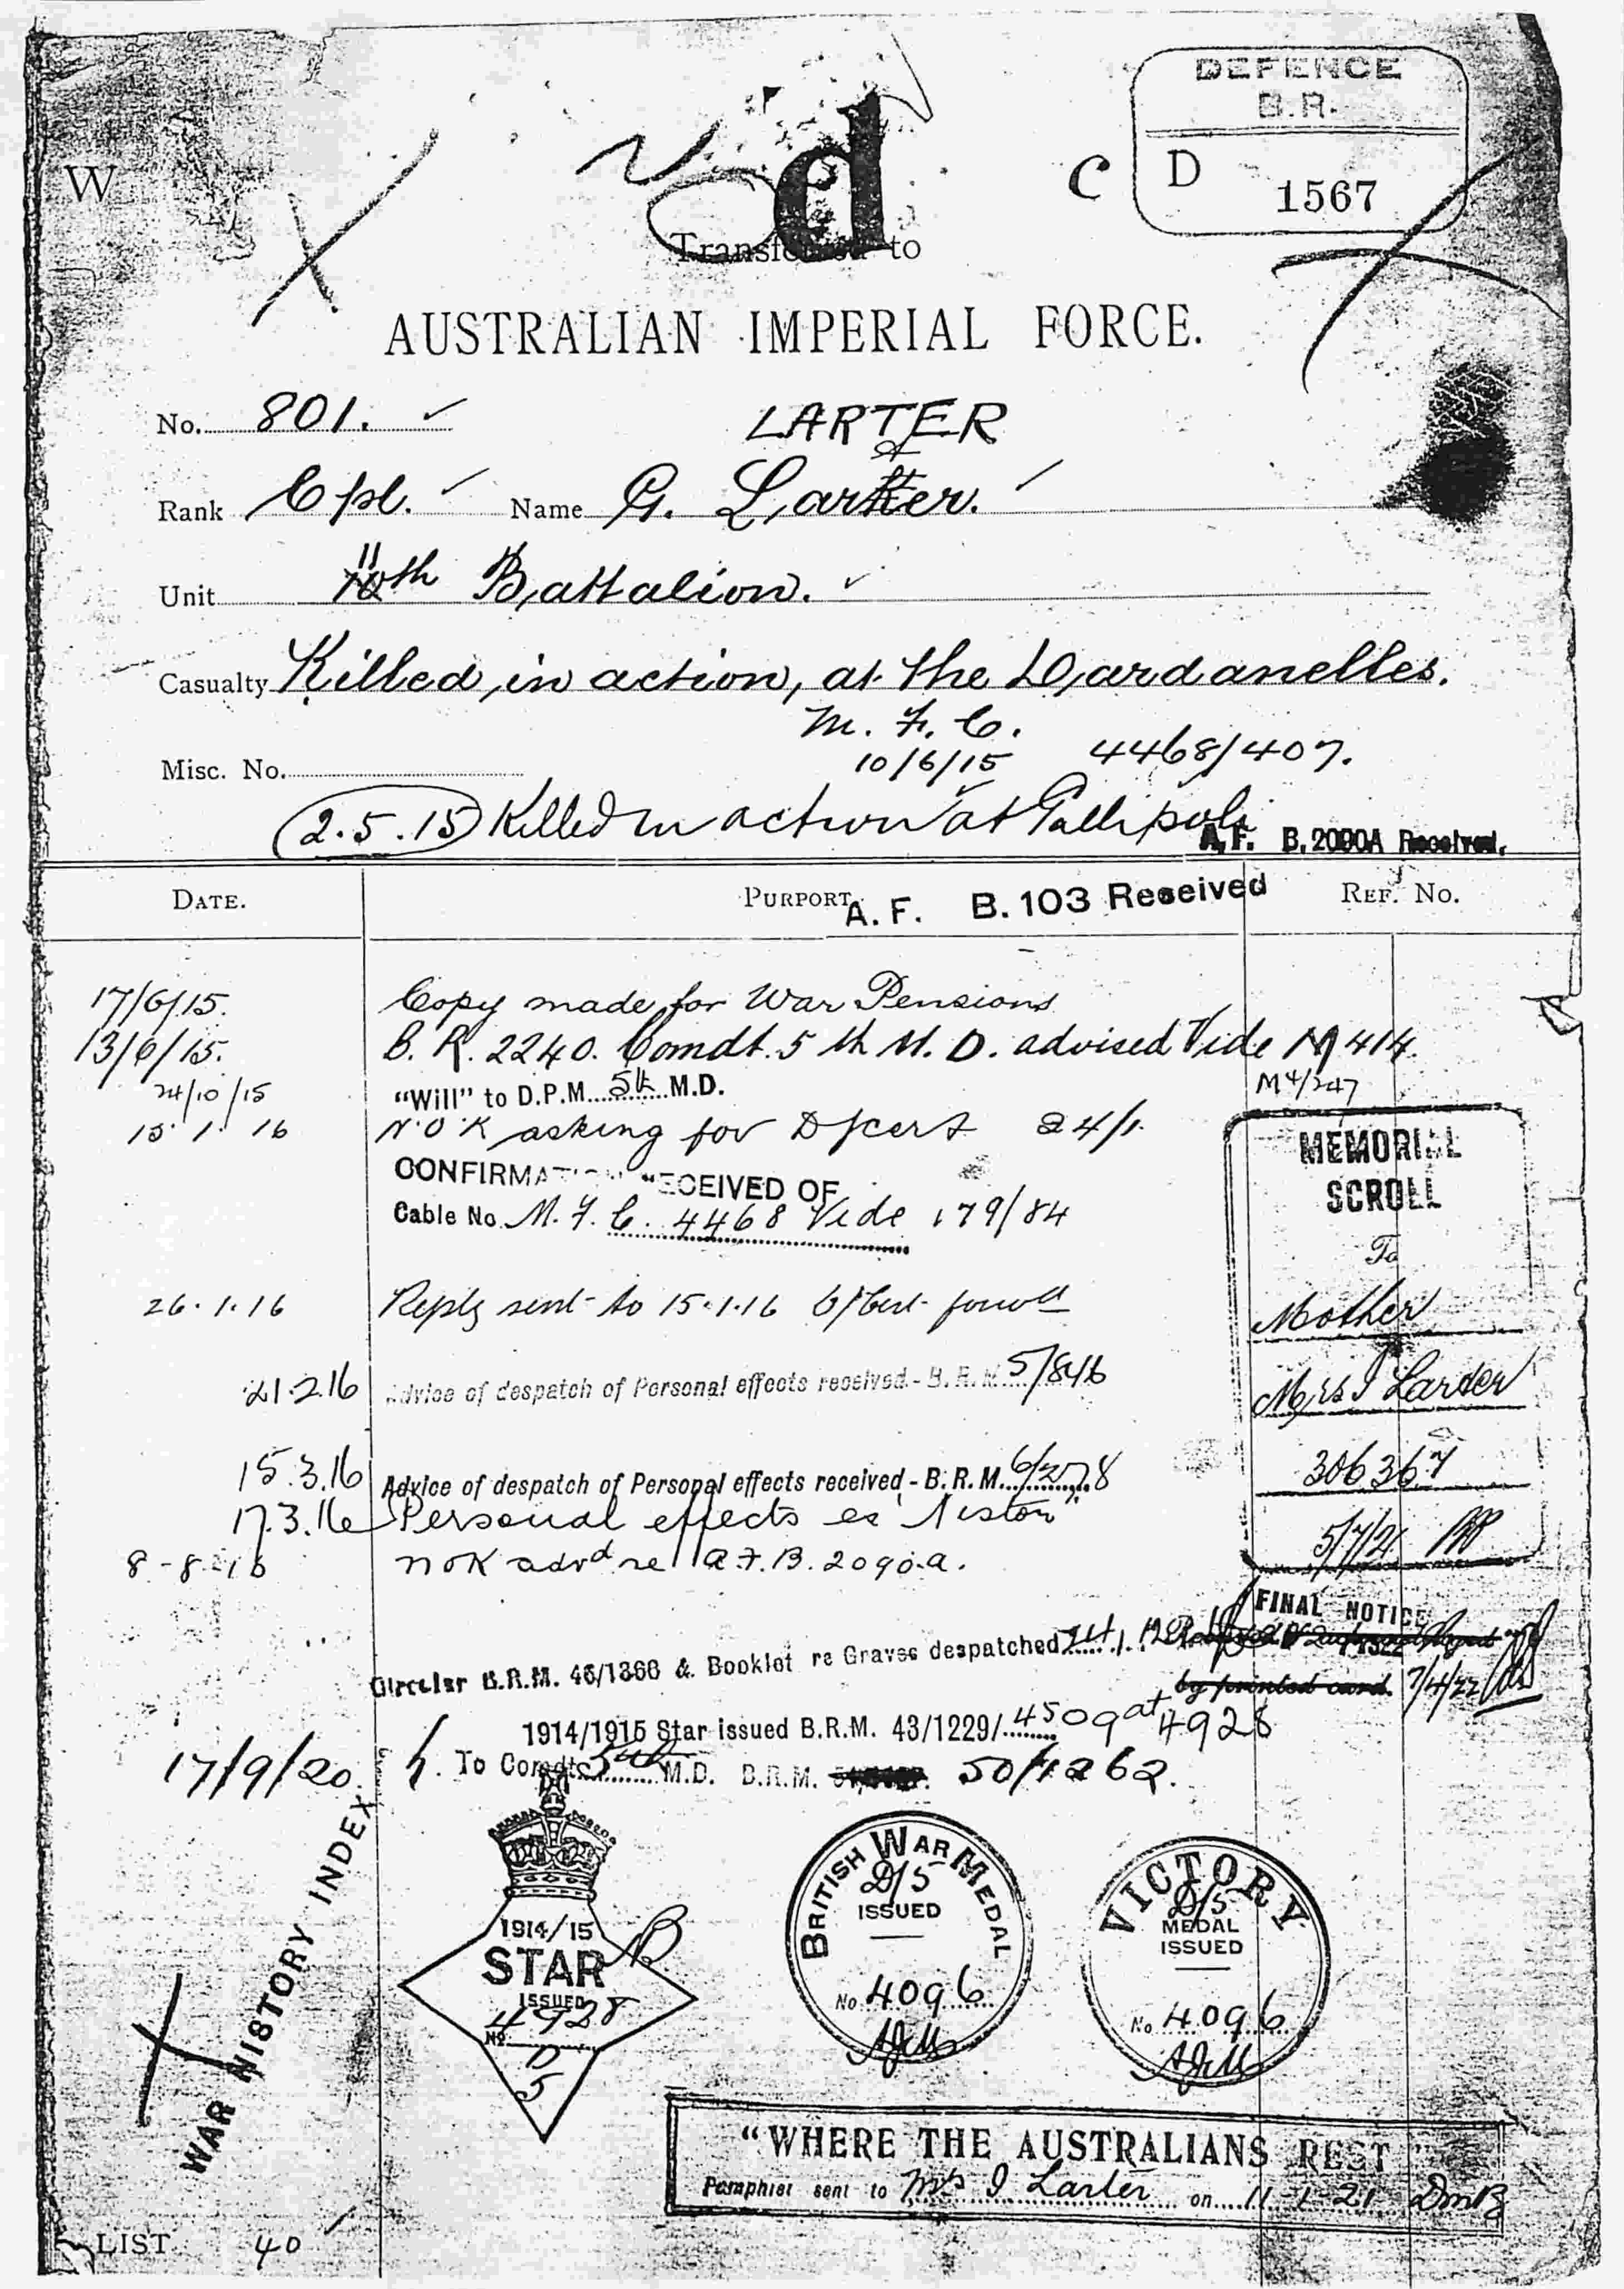 DEFENCE
B.R.
W
C
D
1567
d
Transferred to
AUSTRALIAN IMPERIAL FORCE.
No. 801.
LARTER
Rank Cpl. Name G. Larter.
11
10th
Unit Battalion.
Casualty Killed in action, at the Dardanelles.
M. F. C.
Misc. No. 10/6/15 4468/407.
2.5.15 Killed in action at Gallipoli
A.F. B. 2090A Received.
DATE. PURPORT. REF. No.
A. F. B. 103 Received
17/6/15. Copy made for War Pensions
13/6/15. B. R. 2240. Comdt. 5th M. D. advised Vide M 414.
24/10/15 "Will" to D.P.M. 5th M.D. M4/247
15.1.16 N.O.K asking for D/cert 24/1.
CONFIRMATION RECEIVED OF
Cable No. M. F. C. 4468 Vide 179/84
MEMORIAL
SCROLL
To
Mother
Mrs I Larter
306367
5/7/21
26.1.16 Reply sent to 15.1.16 C/Cert forwd
21.2.16 Advice of despatch of Personal effects received - B.R.M. 5/846
15.3.16 Advice of despatch of Personal effects received - B.R.M. 6/278
17.3.16 Personal effects ex
8-8-16 NOK advd re A.F.B. 2090.a.
FINAL NOTICE
Circular B.R.M. 46/1366 & Booklet re Graves despatched
by printed card. 7/4/22
1914/1915 Star issued B.R.M. 43/1229/ 4509 at 4928
17/9/20. To Comdt. 5th M.D. B.R.M. 50/1262.
WAR HISTORY INDEX
1914/15
STAR
ISSUED
No. 4928
D
5
BRITISH WAR MEDAL
D/5
ISSUED
No. 4096
VICTORY
D/5
MEDAL
ISSUED
No. 4096
"WHERE THE AUSTRALIANS REST"
Pamphlet sent to Mrs I Larter on 11-1-21
LIST 40